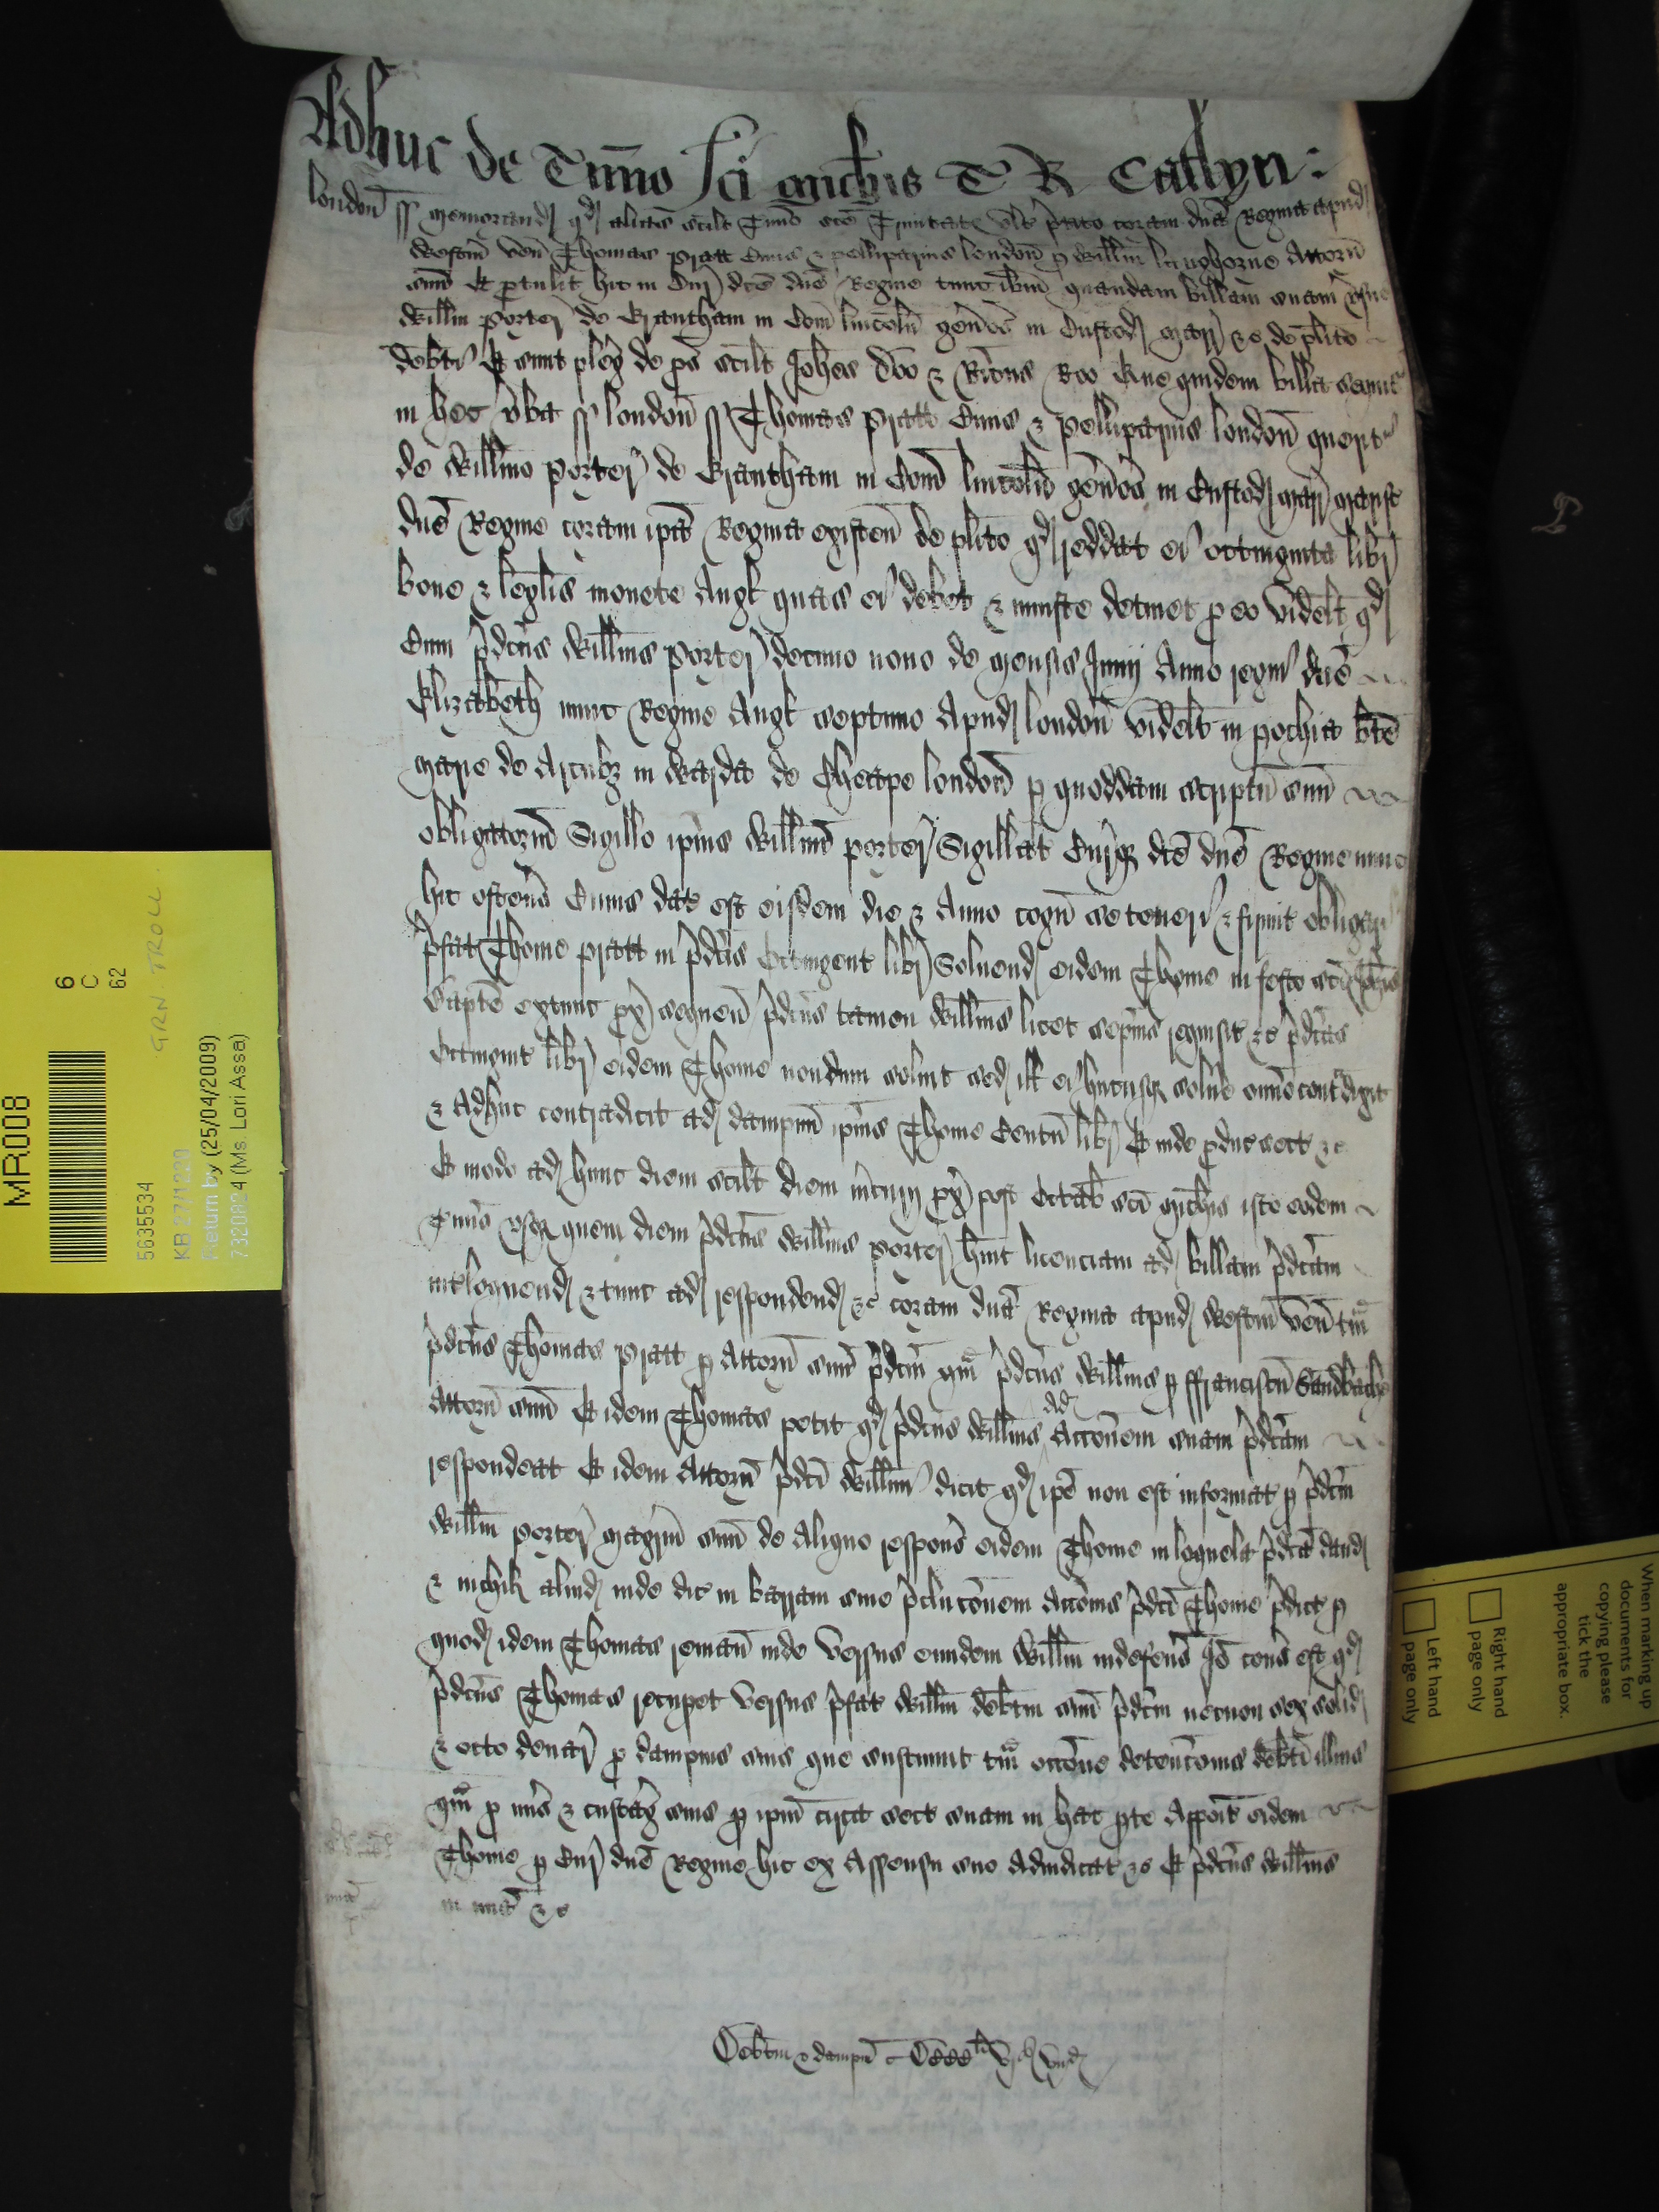 Adhuc de Tmino sci Michis T R Catlyn:
london ss memorand qd alias scilt Tmio sce Trinitatis ult pterito coram dna Regina apud
Westm ven Thomas pratt Civis & pelliparius london p willm langhorne Attorn
suu Et ptulit hic in Cur dce dne Regine tunc ibm quandam billam suam vsus
willm porter de Grantham in Com lincoln genos in Custod marr &c de plito
debti Et sunt pleg de ps scilt Johes doo & Ricus Roo Que quidem billa sequit
in hec vba ss london ss Thomas pratt Civis & pelliparius london querit
de willmo porter de Grantham in Com lincoln genos in Custod marr marest
dne Regine coram ipa Regina existen de plito qd reddat ei octinginta libr
bone & leglis monete Angl quas ei debet & iniuste detinet p eo videlt qd
Cum pdcus willms porter decimo nono de mensis Junij Anno regni dne
Elizabeth nunc Regine Angl septimo Apud london videlt in pochia bte
marie de Arcubz in warda de Cheape london p quoddam scriptu suu
obligatoriu Sigillo ipius willmi porter Sigillat Curieqz dce dne Regine nunc
hic ostens Cuius dat est eisdem die & Anno cogn se teneri & firmit obligari
pfat Thome pratt in pdcis Octingent libr Soluend eidem Thome in festo sci Johis
Bapte extunc px sequen pdcus tamen willms licet sepius requisit &c pdcas
Octingint libr eidem Thome nondum soluit sed ill ei hucusqz solue omio contdixit
& Adhuc contradicit ad dampnu ipius Thome Centu libr Et inde pduc sect &c
Et modo ad hunc diem scilt diem mcurij px post Octab sci Michis isto eodem
Tmio vsqz quem diem pdcus willms porter huit licenciam ad billam pdcam
intloquend & tunc ad respondend &c coram dna Regina apud westm ven tm
pdcus Thomas pratt p Attorn suu pdcm qm pdcus willms p ffranciscu Sandbache
Attorn suu Et idem Thomas petit qd pdcus willms ad Acconem suam pdcam
respondeat Et idem Attorn pdci willmi dicit qd ipe non est informat p pdcm
willm porter magrm suu de Aliquo respons eidem Thome in loquela pdca dand
& nichil aliud inde dic in barram sive pcluconem Accois pdci Thome pdict p
quod idem Thomas reman inde versus eundem willm indefens Io cons est qd
pdcus Thomas recupet versus pfat willm debtm suu pdcm necnon sex solid
& octo denar p dampnis suis que sustinuit tm occone detencois debti illius
qm p mis & custag suis p ipm circa sect suam in hac pte Appoit eidem
Thome p Cur dne Regine hic ex Assensu suo Adiudicat &c Et pdcus willms
in mia &c
Debtm & dampn Dccc li vj s viij d
MR008
6
C
62
GRN. TROLL.
5635534
KB 27/1220
Return by (25/04/2009)
7320824 (Ms. Lori Assa)
When marking up
documents for
copying please
tick the
appropriate box.
Right hand
page only
Left hand
page only